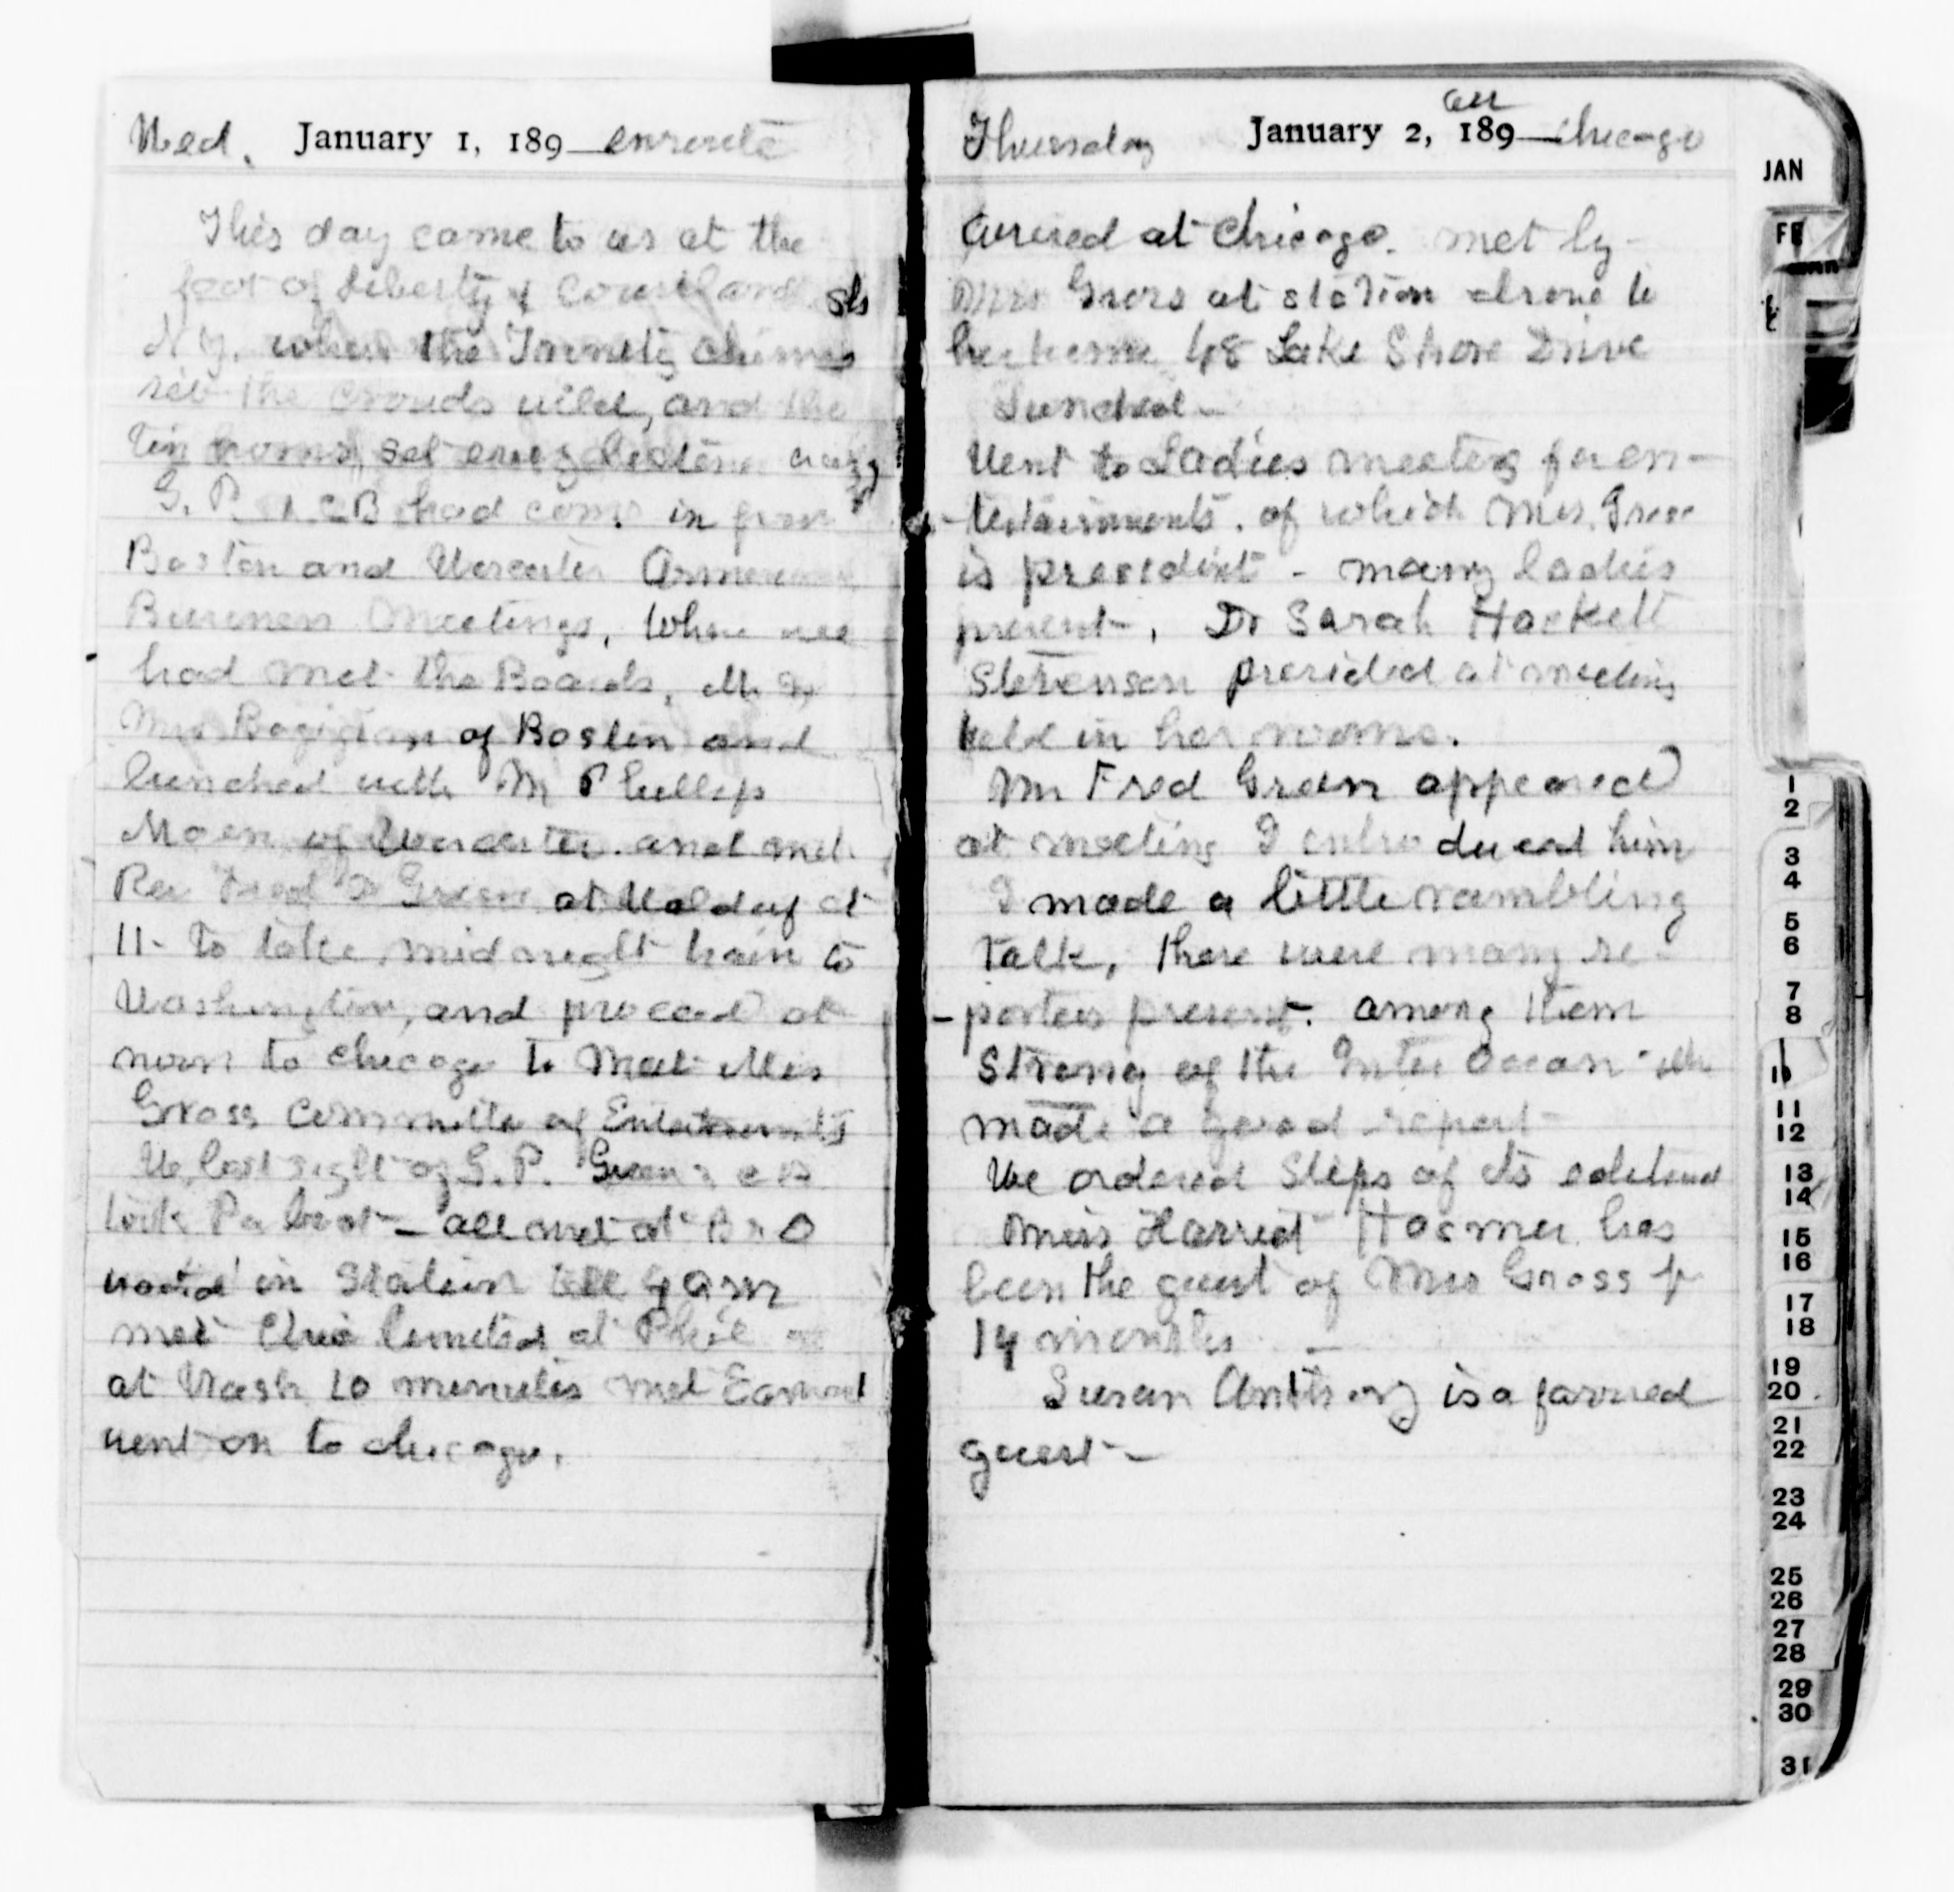 Wed. January 1, 189 — enroute
This day came to us at the
foot of Liberty & Courtland sts
N.Y. when the Trinity chimes
set the crowds wild, and the
tin horns, set every listener crazy
G. P. & CB had come in from
Boston and Worcester Armenian
Business Meetings, Where we
had met the Boards, Mr &
Mrs Bogigian of Boston and
lunched with Mr Phillip
Moen of Worcester and met
Rev Fred D Green at Waldorf at
11 - to take midnight train to
Washington, and proceed at
noon to Chicago to Meet Mrs
Gross committe of Entertainments
We lost sight of G. P. Green & CB
took Pa boat — all met at B & O
waited in Station till 4 am
met Ohio limited at Phil
at Wash 10 minutes met
went on to Chicago.
Thursday January 2, 189 — Chicago
arr
Arrived at Chicago. met by
Mrs Gross at station drove to
her home 48 Lake Shore Drive
Lunched -
Went to Ladies meeting for en-
-tertainments. of which Mrs. Gross
is president - many ladies
present, Dr Sarah Hackett
Stevenson presided at meeting
held in her rooms.
Mr Fred Green appeared
at meeting I introduced him
I made a little rambling
talk, there were many re-
-porters present. among them
Strong of the Inter Ocean - who
made a good report -
We ordered Slips of its editions
Miss Harriet Hosmer has
been the guest of Mrs Gross for
14 months —
Susan Anthony is a favored
guest —
JAN
FE
1
2
3
4
5
6
7
8
10
11
12
13
14
15
16
17
18
19
20
21
22
23
24
25
26
27
28
29
30
31